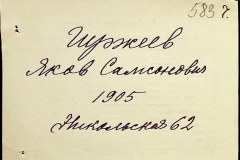 583 г.
Шржеев
Яков Самсонович
1905
Никольская 62